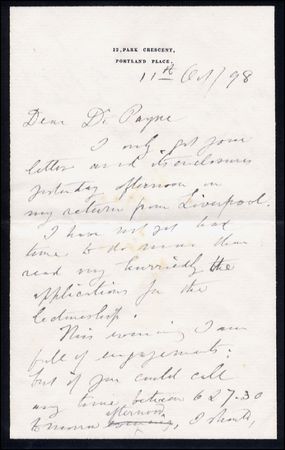 12, PARK CRESCENT,
PORTLAND PLACE.
11th Oct/98
Dear Dr Payne
I only got your
letter and its enclosures
yesterday afternoon on
my return from Liverpool.
I have not yet had
time to do more than
read very hurriedly the
applications for the
lectureship.
This evening I am
full of engagements:
but if you could call
any time between 6 & 7.30
tomorrow afternoon, I should,